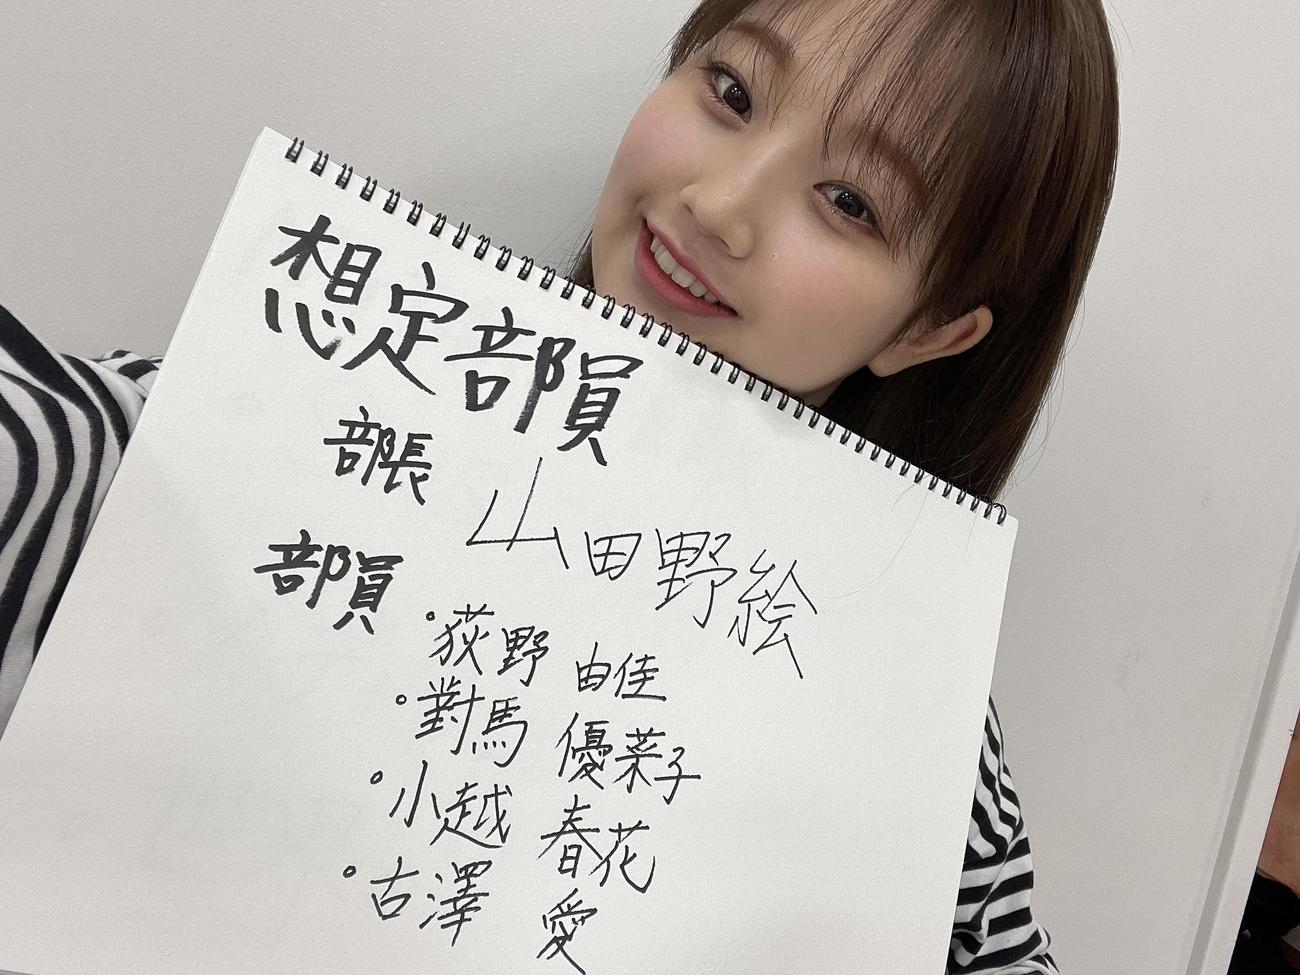 想定部員
部長 山田野絵
部員 ・荻野 由佳
・對馬 優菜子
・小越 春花
・古澤 愛